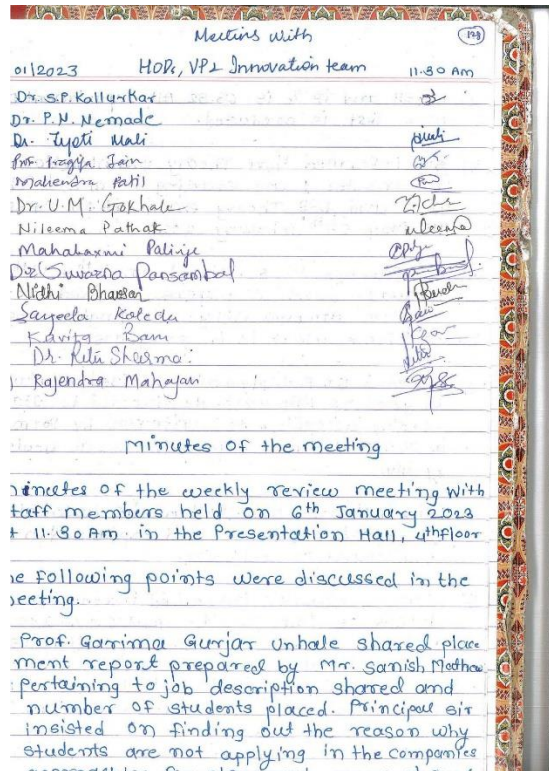 Meeting with
129
01/2023 HODs, VP & Innovation team 11.30 Am
Dr. S.P. Kallurkar
Dr. P.N. Nemade
Dr. Jyoti Mali
Prof. Pragya Jain
Mahendra Patil
Dr. U.M. Gokhale
Nileema Pathak
Mahalaxmi Palinje
Dr. Suvarna Pansambal
Nidhi
Sangeeta
Kavita Bani
Dr. Ritu Sharma
Rajendra Mahajan
Minutes of the meeting
inutes of the weekly review meeting with
taff members held on 6th January 2023
t 11.30 Am in the Presentation Hall, 4th floor
e following points were discussed in the
eeting.
Prof. Garima Gurjar Unhale shared place
ment report prepared by Mr. Sanish Mathew
pertaining to job description shared and
number of students placed. Principal sir
insisted on finding out the reason why
students are not applying in the companies